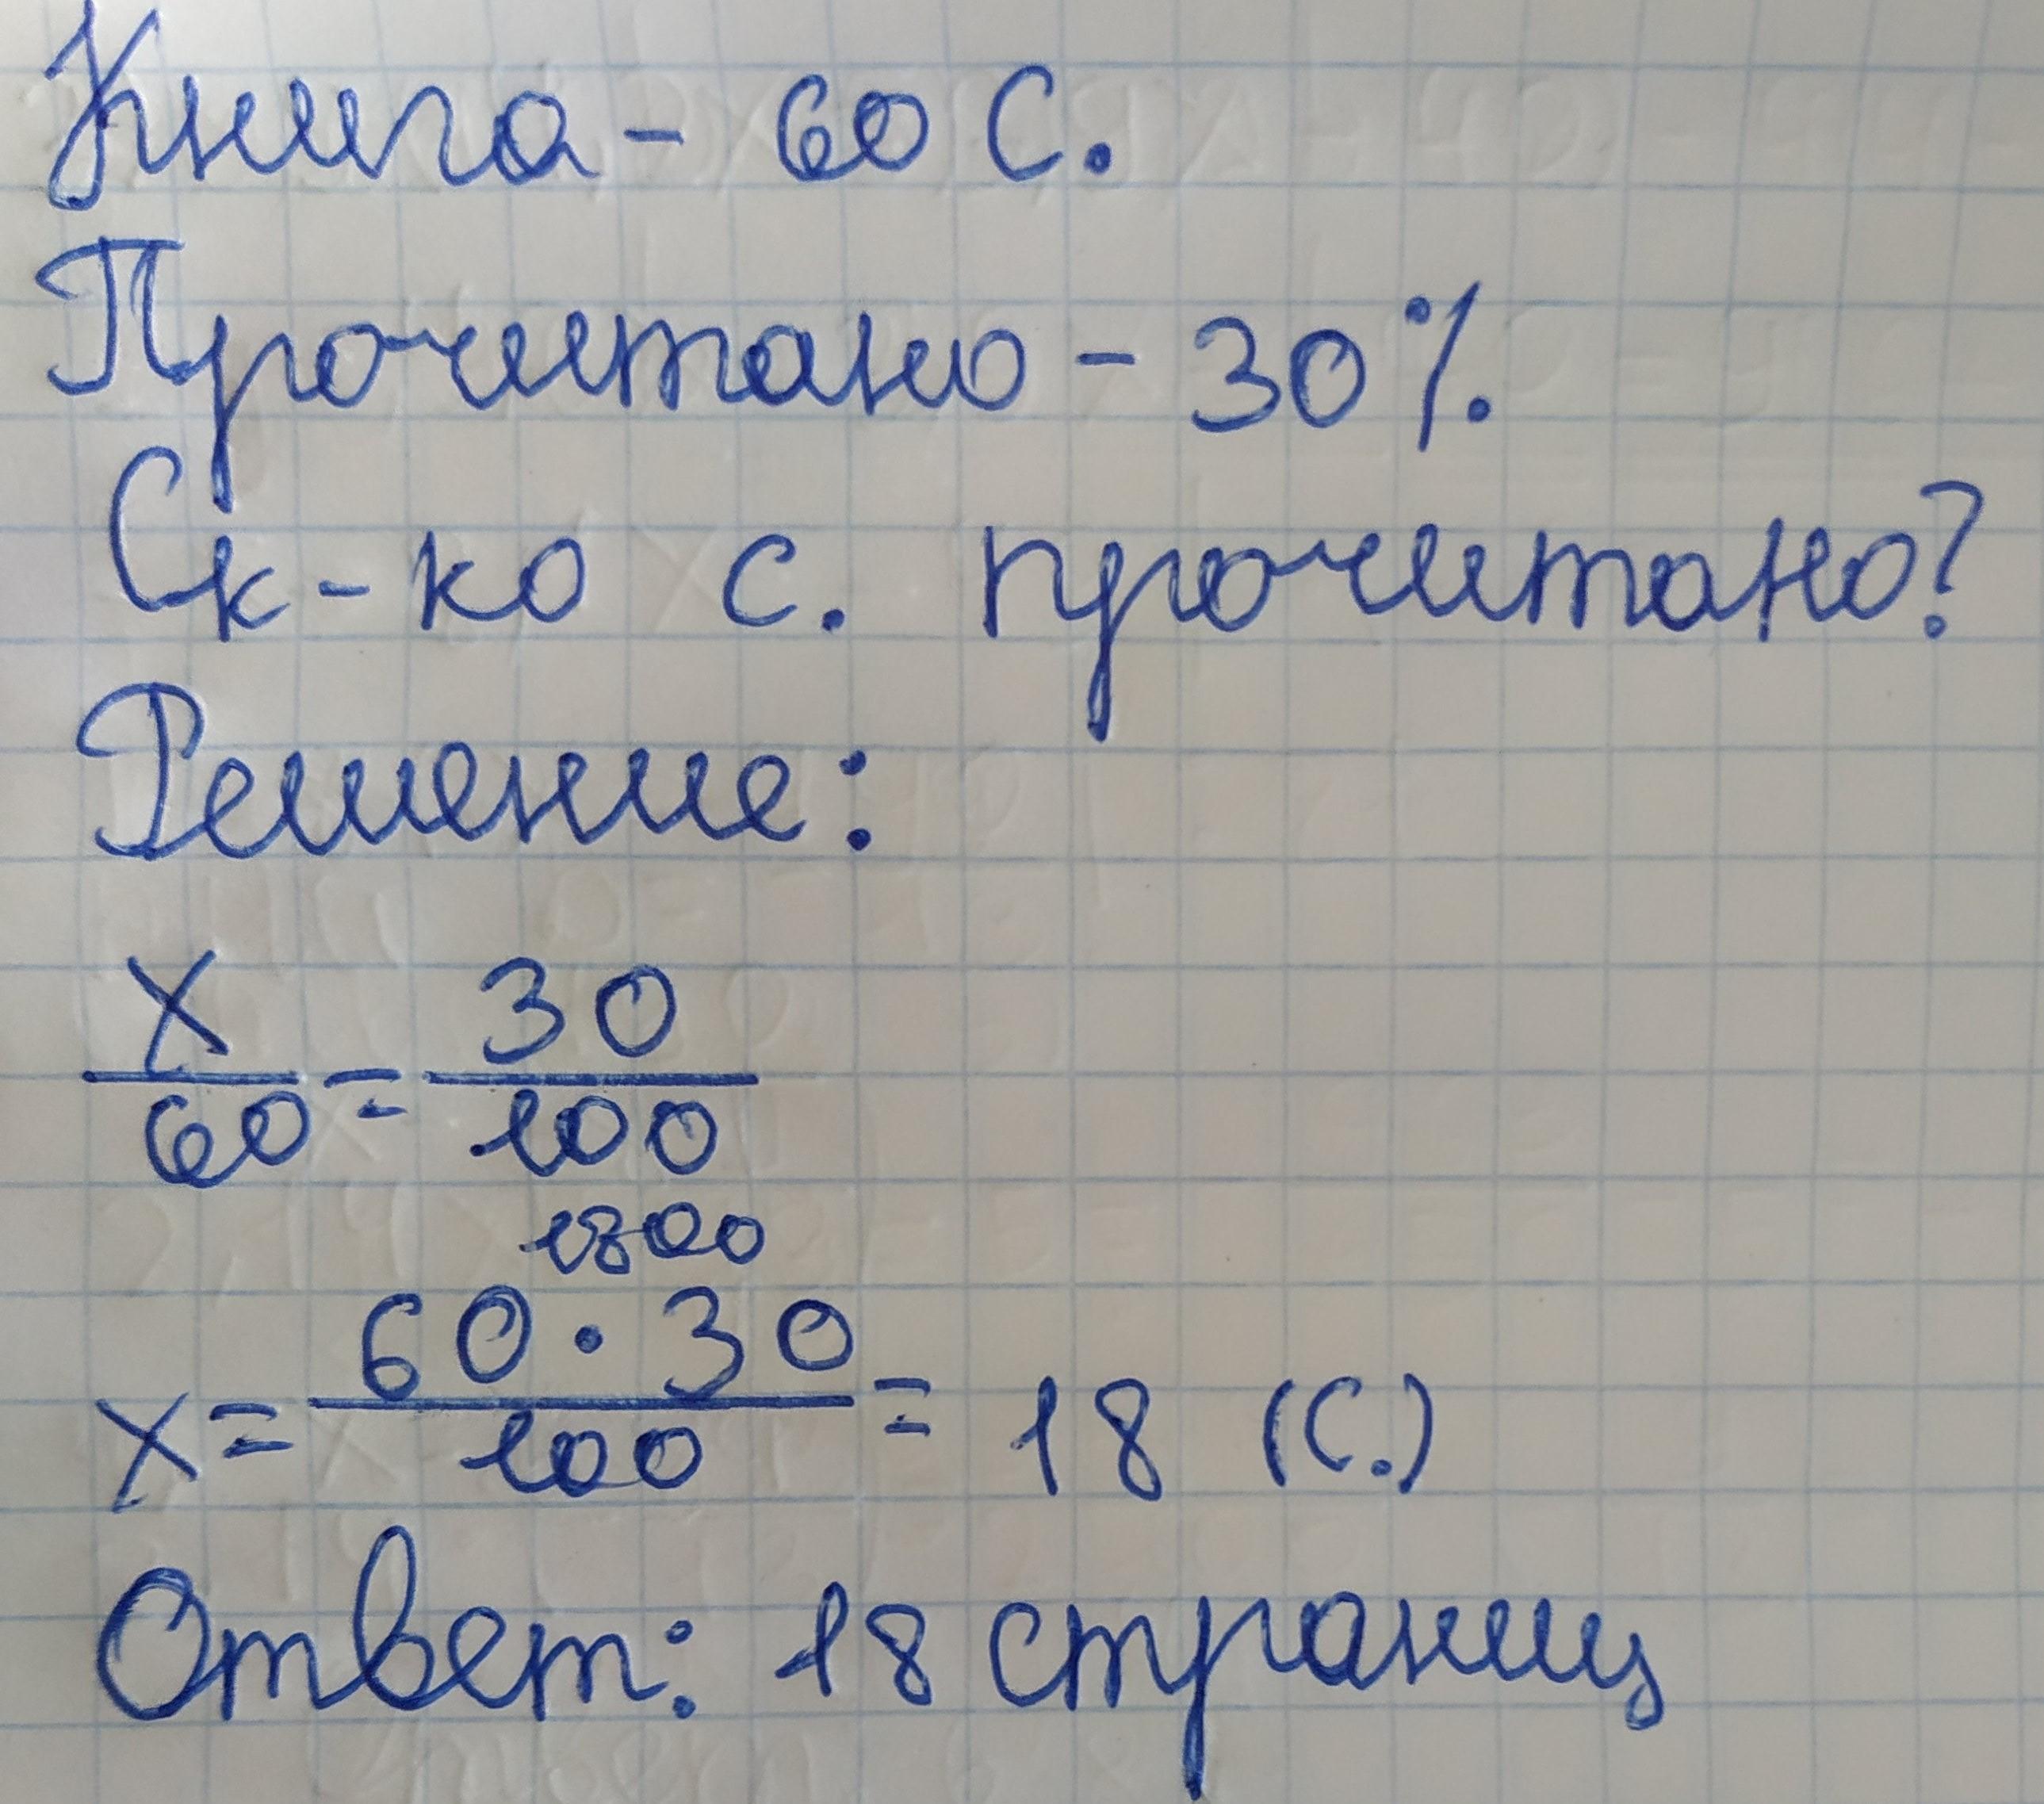 Книга - 60 с.
Прочитано - 30%
Ск-ко с. прочитано?
Решение:
x/60 = 30/100
1800
x = 60 · 30/100 = 18 (с.)
Ответ: 18 страниц